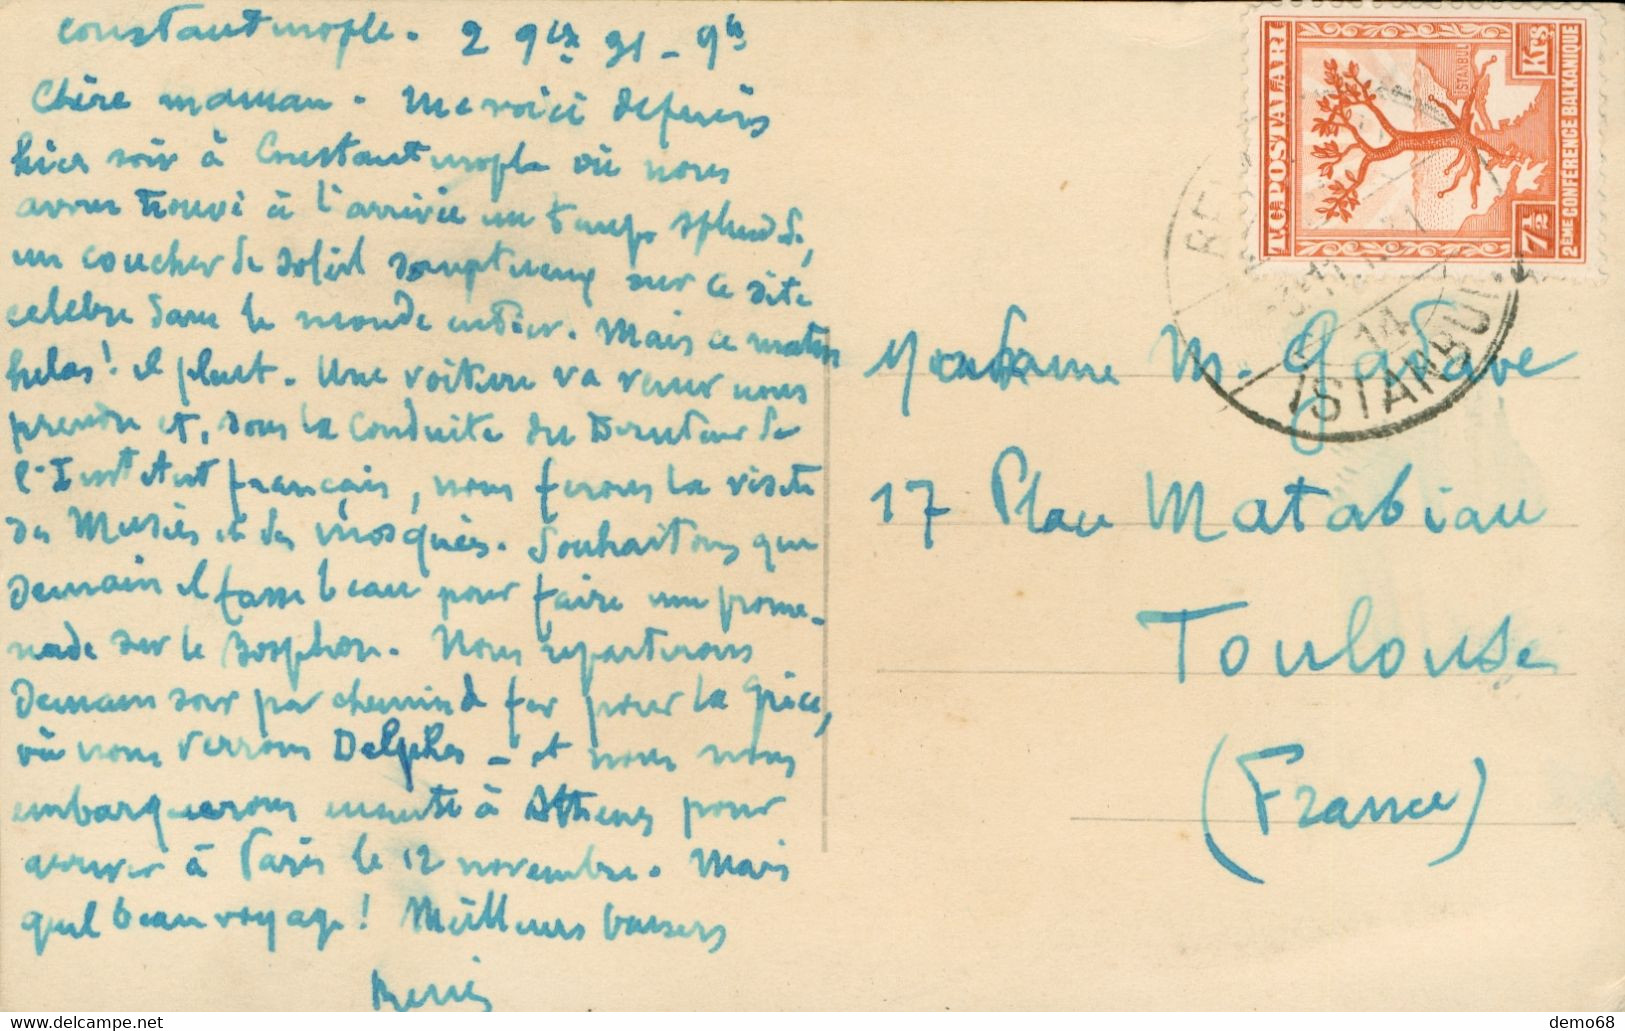 Constantinople. 2 9bre 31 - 9h
Chère maman. Me voici depuis
hier soir à Constantinople où nous
avons trouvé à l'arrivée un temps splendide,
un coucher de soleil somptueux sur ce site
celèbre dans le monde entier. Mais ce matin
helas! il pleut. Une voiture va venir nous
prendre et, sous la conduite du Directeur de
l'Institut français, nous ferons la visite
des Musées et des mosquées. Souhaitons que
demain il fasse beau pour faire une prome-
nade sur le Bosphore. Nous repartirons
demain soir par chemin de fer pour la Grèce,
où nous verrons Delphes - et nous nous
embarquerons ensuite à Athènes pour
arriver à Paris le 12 novembre. Mais
quel beau voyage! Meilleurs baisers
T.C. POSTALARI
ISTANBUL
7½ Krş
2ÈME CONFÉRENCE BALKANIQUE
14
ISTANBUL
Madame M. Gadave
17 Place Matabiau
Toulouse
(France)
demo68